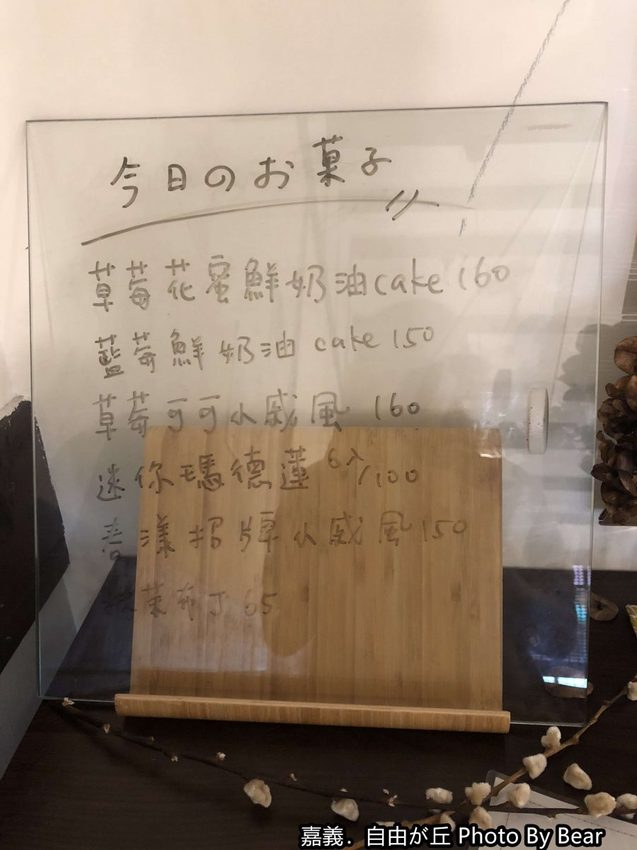 今日のお菓子
草莓花蜜鮮奶油cake 160
藍莓鮮奶油 cake 150
草莓可可小戚風 160
迷你瑪德蓮 6入/100
漾招牌小戚風 150
布丁 65
嘉義．自由が丘 Photo By Bear